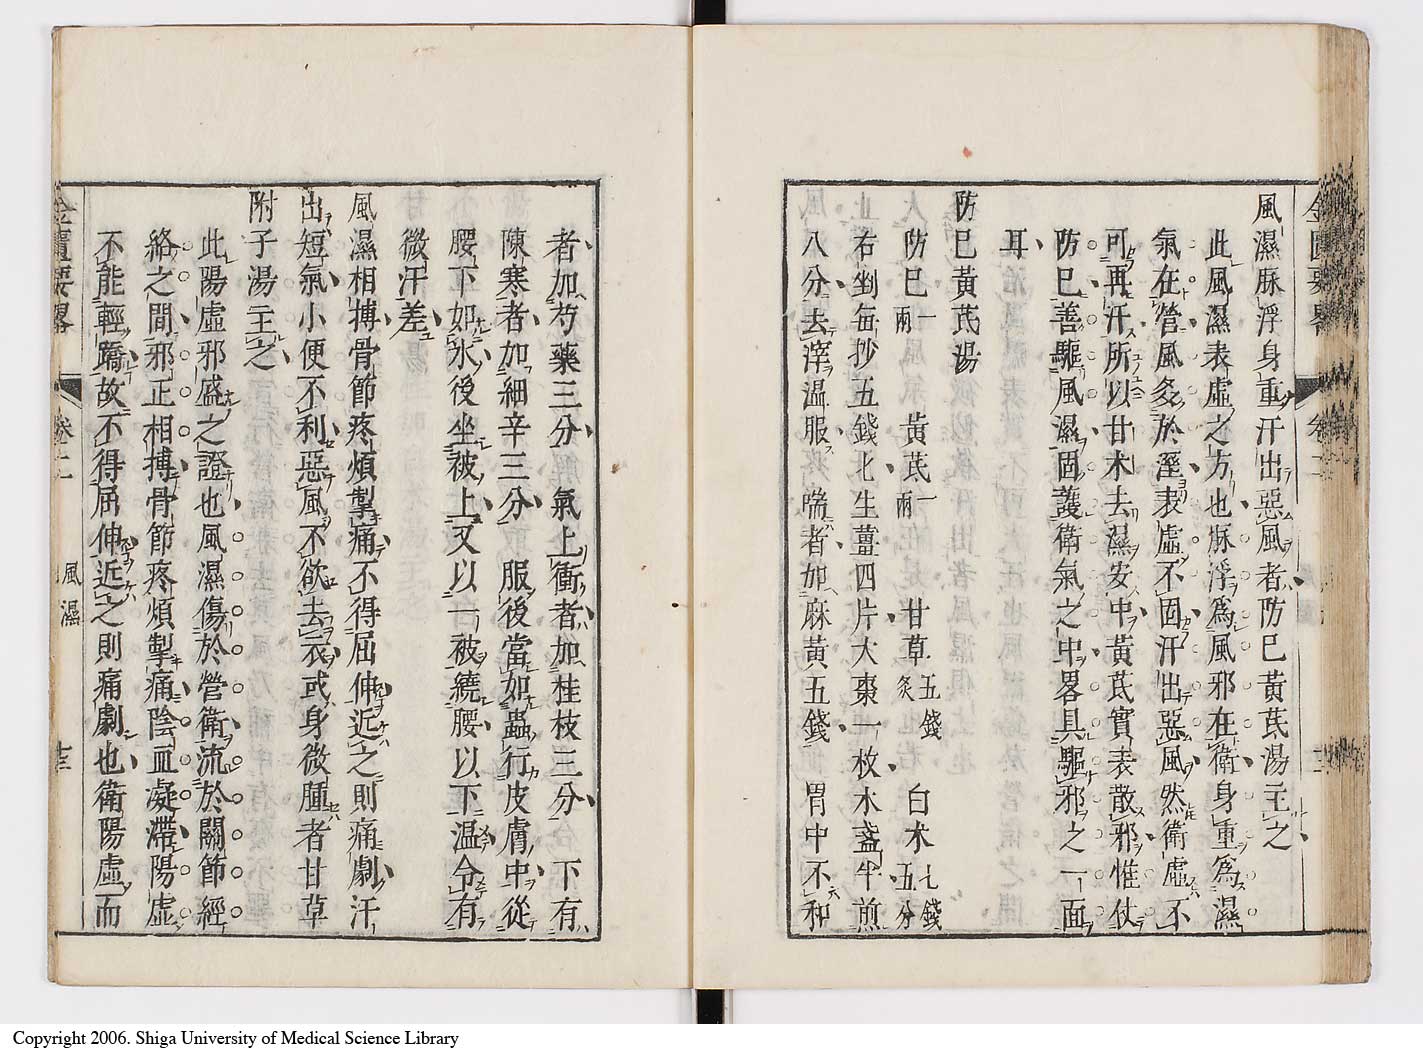 風濕脉浮身重汗出惡風者防巳黃茋湯主之
此風濕表虛之方也脉浮爲風邪在衛身重爲濕
氣在營風炙於溼表虛不固汗出惡風然衛虛不
可再汗所以甘术去濕安中黃茋實表散邪惟仗
防巳善驅風濕固護衛氣之中畧具驅邪之一面
耳
防巳黃茋湯
防巳一兩 黃茋一兩 甘草五錢炙 白术七錢五分
右剉每抄五錢匕生薑四片大棗一枚水盞半煎
八分去滓溫服 喘者加麻黃五錢 胃中不和
者加芍藥三分 氣上衝者加桂枝三分 下有
陳寒者加細辛三分 服後當如蟲行皮膚中從
腰下如氷後坐被上又以一被繞腰以下温令有
微汗差
風濕相搏骨節疼煩掣痛不得屈伸近之則痛劇汗
出短氣小便不利惡風不欲去衣或身微腫者甘草
附子湯主之
此陽虛邪盛之證也風濕傷於營衛流於關節經
絡之間邪正相搏骨節疼煩掣痛陰血凝滯陽虛
不能輕蹻故不得屈伸近之則痛劇也衛陽虛而
金匱要畧 卷二 風濕 十三
Copyright 2006. Shiga University of Medical Science Library